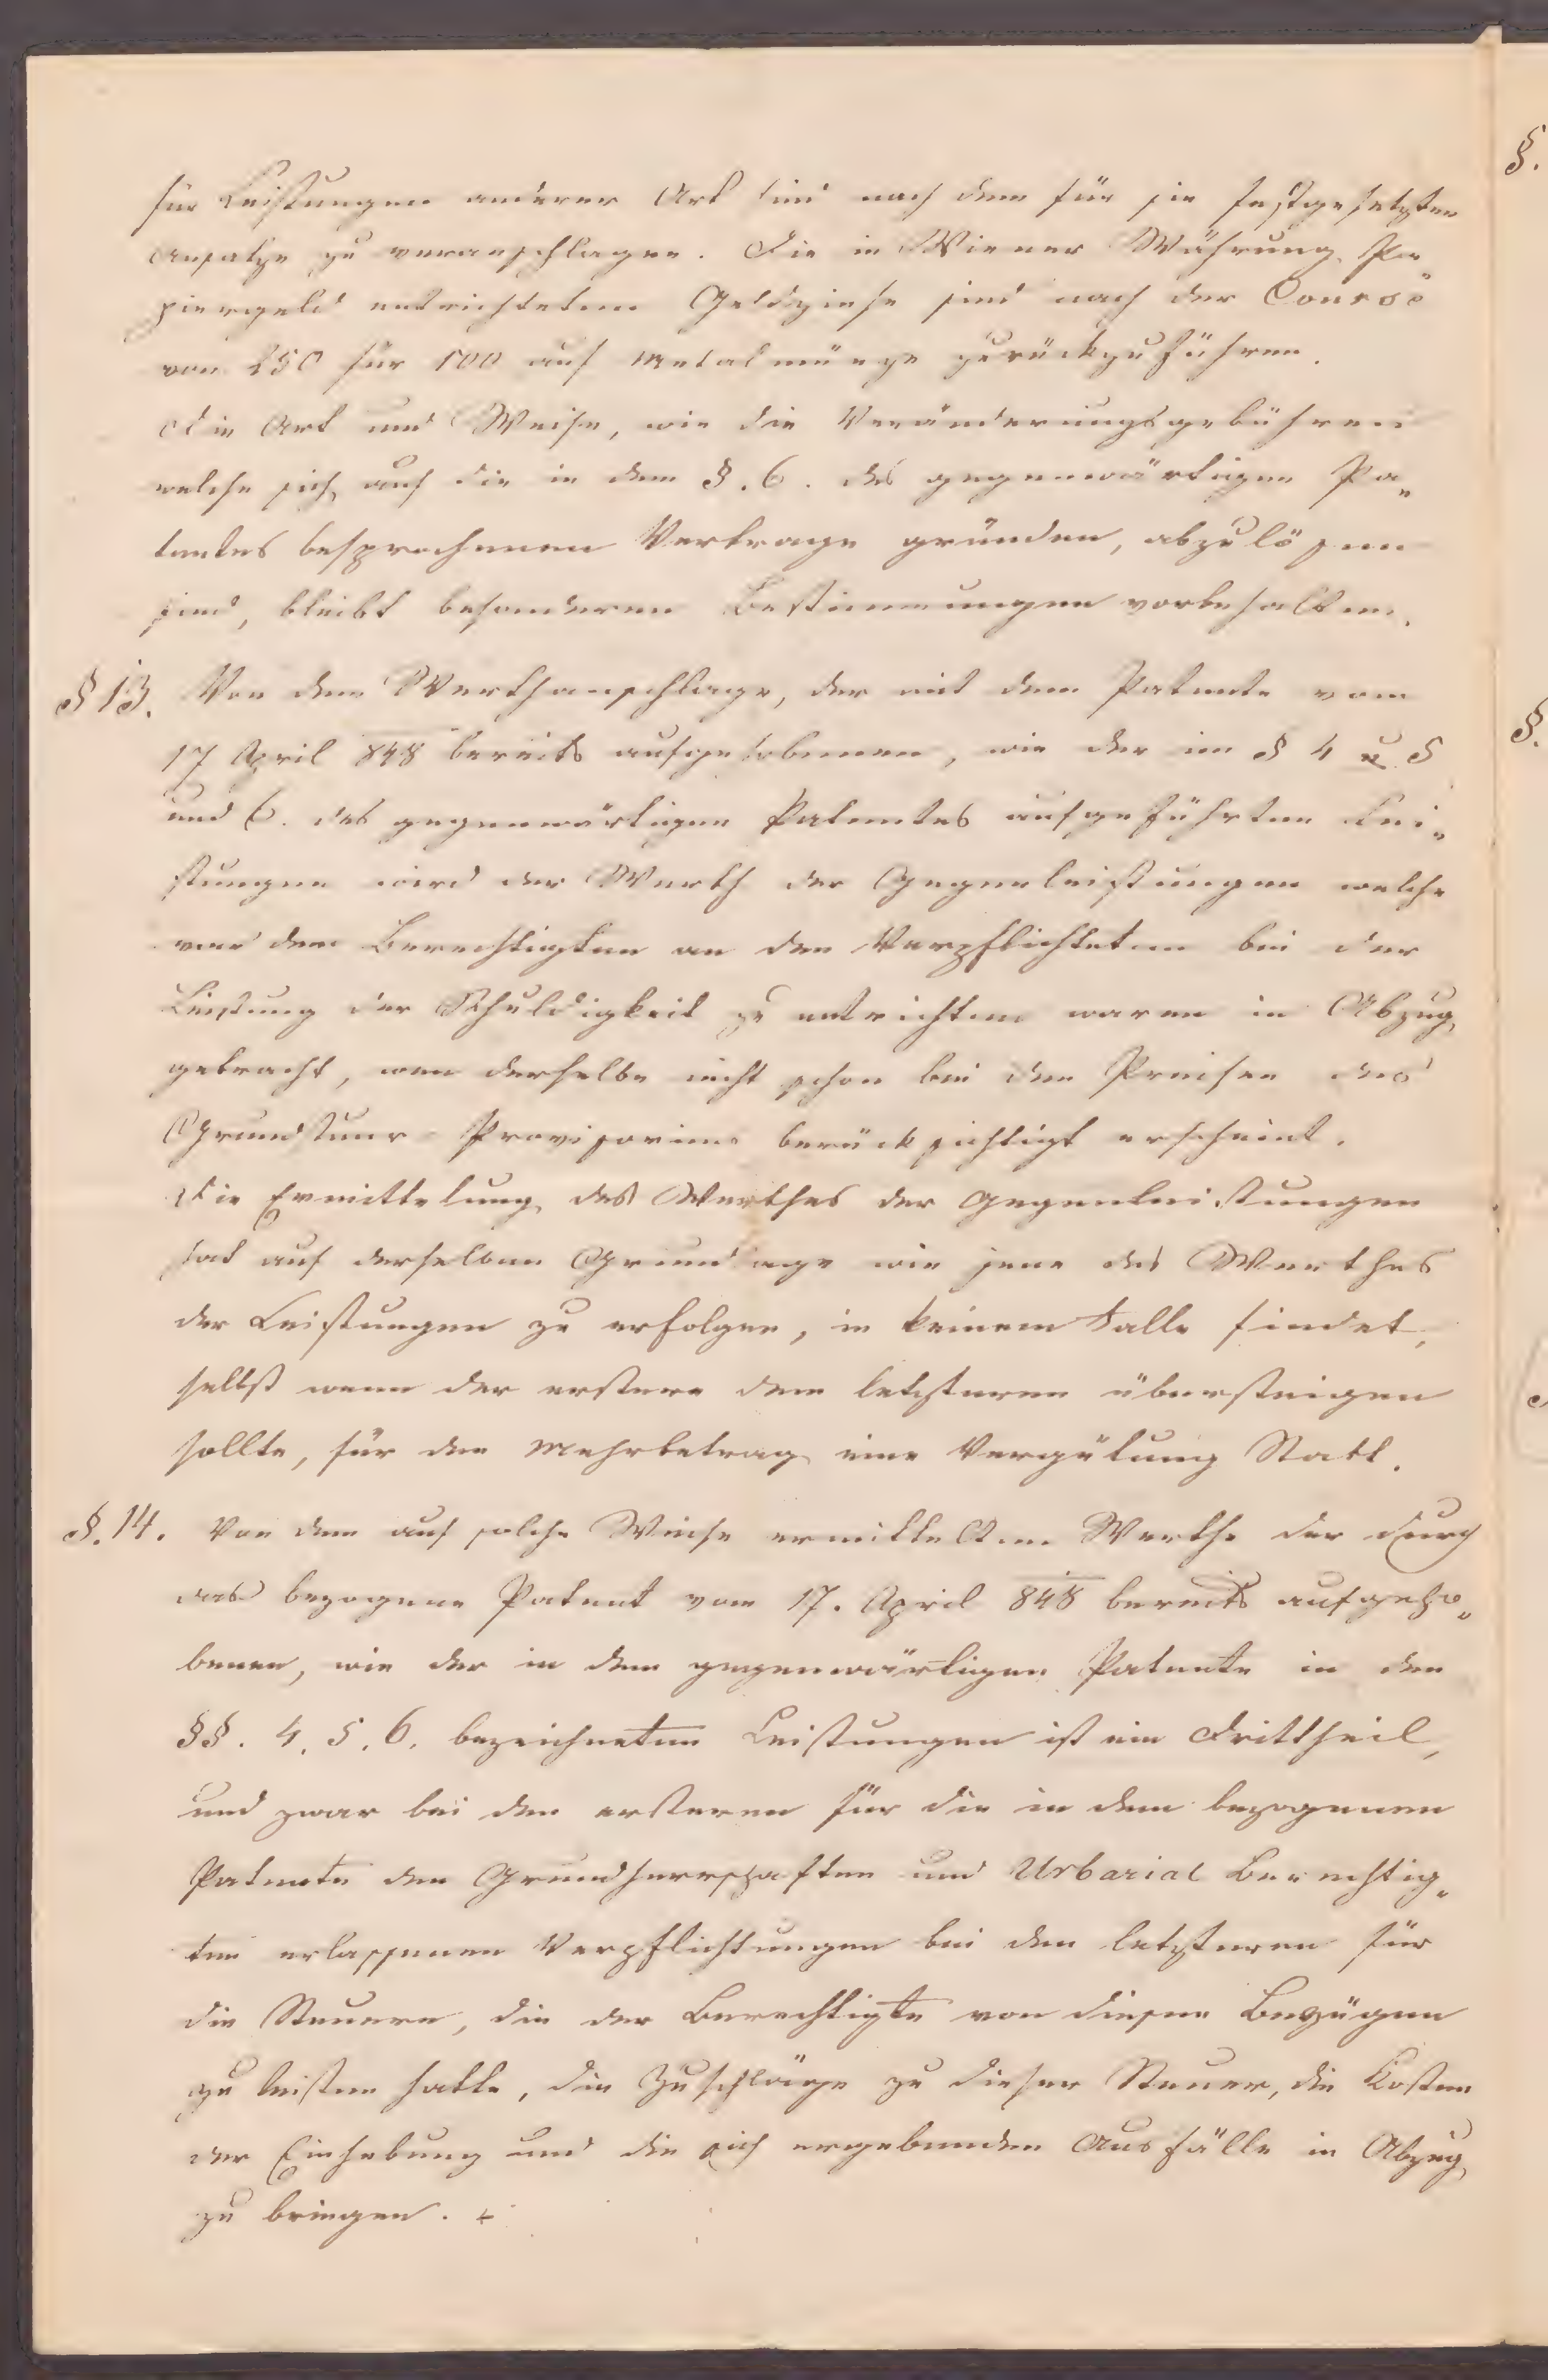 für Leistungen anderer Art sind nach dem für sie festgesetzten
Ansatze zu veranschlagen. Die in Wiener Währung Pa„
piergeld entrichteten Geldzinse sind nach der Course
von 250 für 100 auf Metalmünze zurückzuführen.
Die Art und Weise, wie die Veränderungsgebühren
welche sich auf die in dem §. 6. des gegenwärtigen Pa„
tentes besprochenen Vertrage gründen, abzulösen
sind, bleibt besonderen Bestimmungen vorbehalten.
§ 13. Von dem Werthanschlage, der mit dem Patente vom
17 April 848 bereits aufgehobenen, wie der im § 4 u. 5
und 6. des gegenwärtigen Patentes aufgeführten Lei„
stungen wird der Werth der Gegenleistungen welche
von dem Berechtigten an den Verpflichteten bei der
Leistung der Schuldigkeit zu entrichten waren in Abzug
gebracht, wen derselbe nicht schon bei den Preisen des
Grundsteur-Provisoriums berücksichtigt erscheint.
Die Ermittelung des Werthes der Gegenleistungen
hat auf derselben Grundlage wie jene des Werthes
der Leistungen zu erfolgen, in keinem Falle findet,
selbst wenn der erstere den letzteren übersteigen
sollte, für den Mehrbetrag eine Vergütung Statt.
§. 14. Von dem auf solche Weise ermittelten Werthe der durch
das bezogene Patent vom 17. April 848 bereits aufgeho„
benen, wie der in dem gegenwärtigen Patente in den
§§. 4. 5. 6. bezeichneten Leistungen ist ein Drittheil,
und zwar bei den ersteren für die in dem bezogenen
Patente den Grundherrschaften und Urbarial Berechtig„
ten erlassenen Verpflichtungen bei den letzteren für
die Steuern, die der Berechtigte von diesen Bezügen
zu leisten hatte, die Zuschläge zu dieser Steuer, die Kosten
der Einhebung und die sich ergebenden Ausfälle in Abzug
zu bringen.
§.
§.